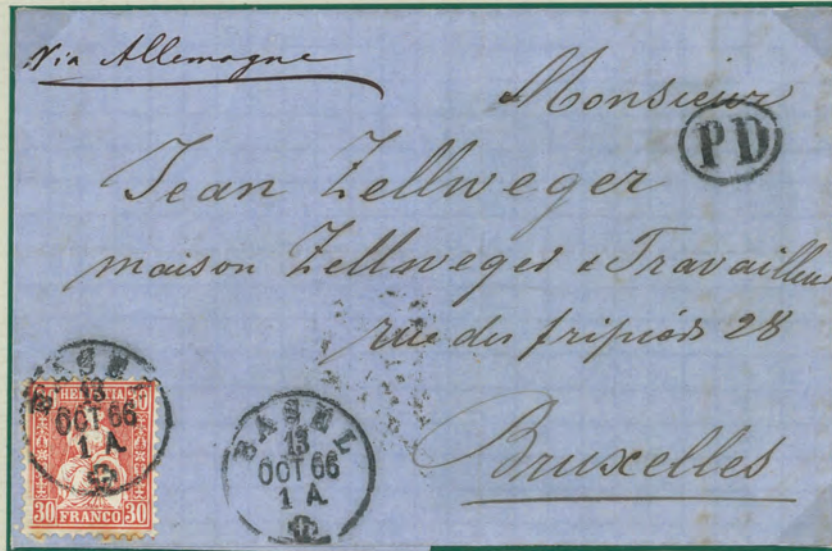 Via Allemagne
Monsieur
PD
Jean Zellweger
maison Zellweger & Travailleur
rue des fripiers 28
Bruxelles
BASEL
13
OCT 66
1 A
HELVETIA
30 30
30 FRANCO 30
BASEL
13
OCT 66
1 A